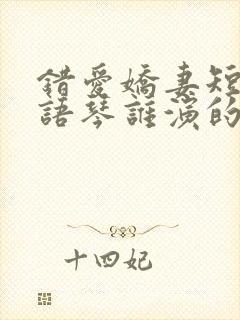 錯愛嬌妻短
語琴誰演的
十四妃